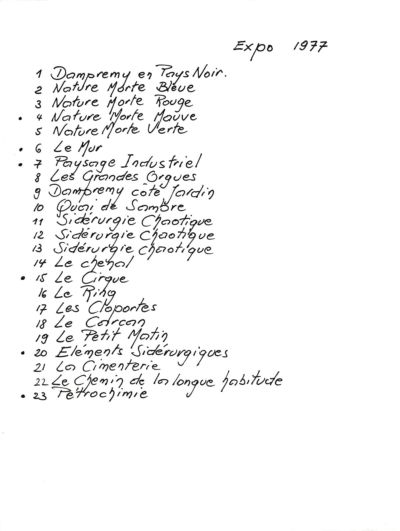 Expo 1977
1 Dampremy en Pays Noir.
2 Nature Morte Bleue
3 Nature Morte Rouge
• 4 Nature Morte Mauve
5 Nature Morte Verte
• 6 Le Mur
• 7 Paysage Industriel
8 Les Grandes Orgues
9 Dampremy côté Jardin
10 Quai de Sambre
11 Sidérurgie Chaotique
12 Sidérurgie Chaotique
13 Sidérurgie chaotique
14 Le chenal
• 15 Le Cirque
16 Le Ring
17 Les Cloportes
18 Le Carcan
19 Le Petit Matin
• 20 Eléments Sidérurgiques
21 La Cimenterie
22 Le Chemin de la longue habitude
• 23 Pétrochimie